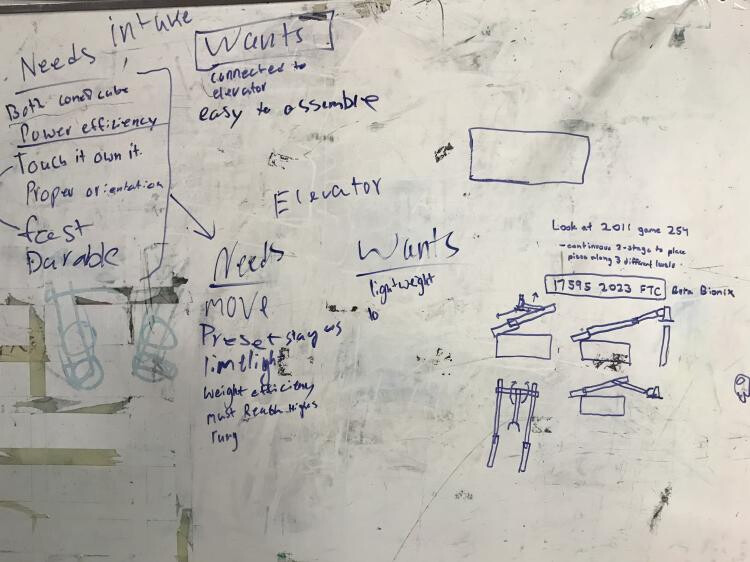 Needs intake
Both cone/cube
Power efficiency
Touch it own it.
Proper orientation
fast
Durable
Wants
connected to
elevator
easy to assemble
Elevator
Needs
move
Preset stay
limtlight
weight efficiency
must Reach Highs
rung
Wants
lightweight
to
Look at 2011 game 254
- continuous 2-stage to place
piece along 3 different levels.
17595 2023 FTC Beta Bionix